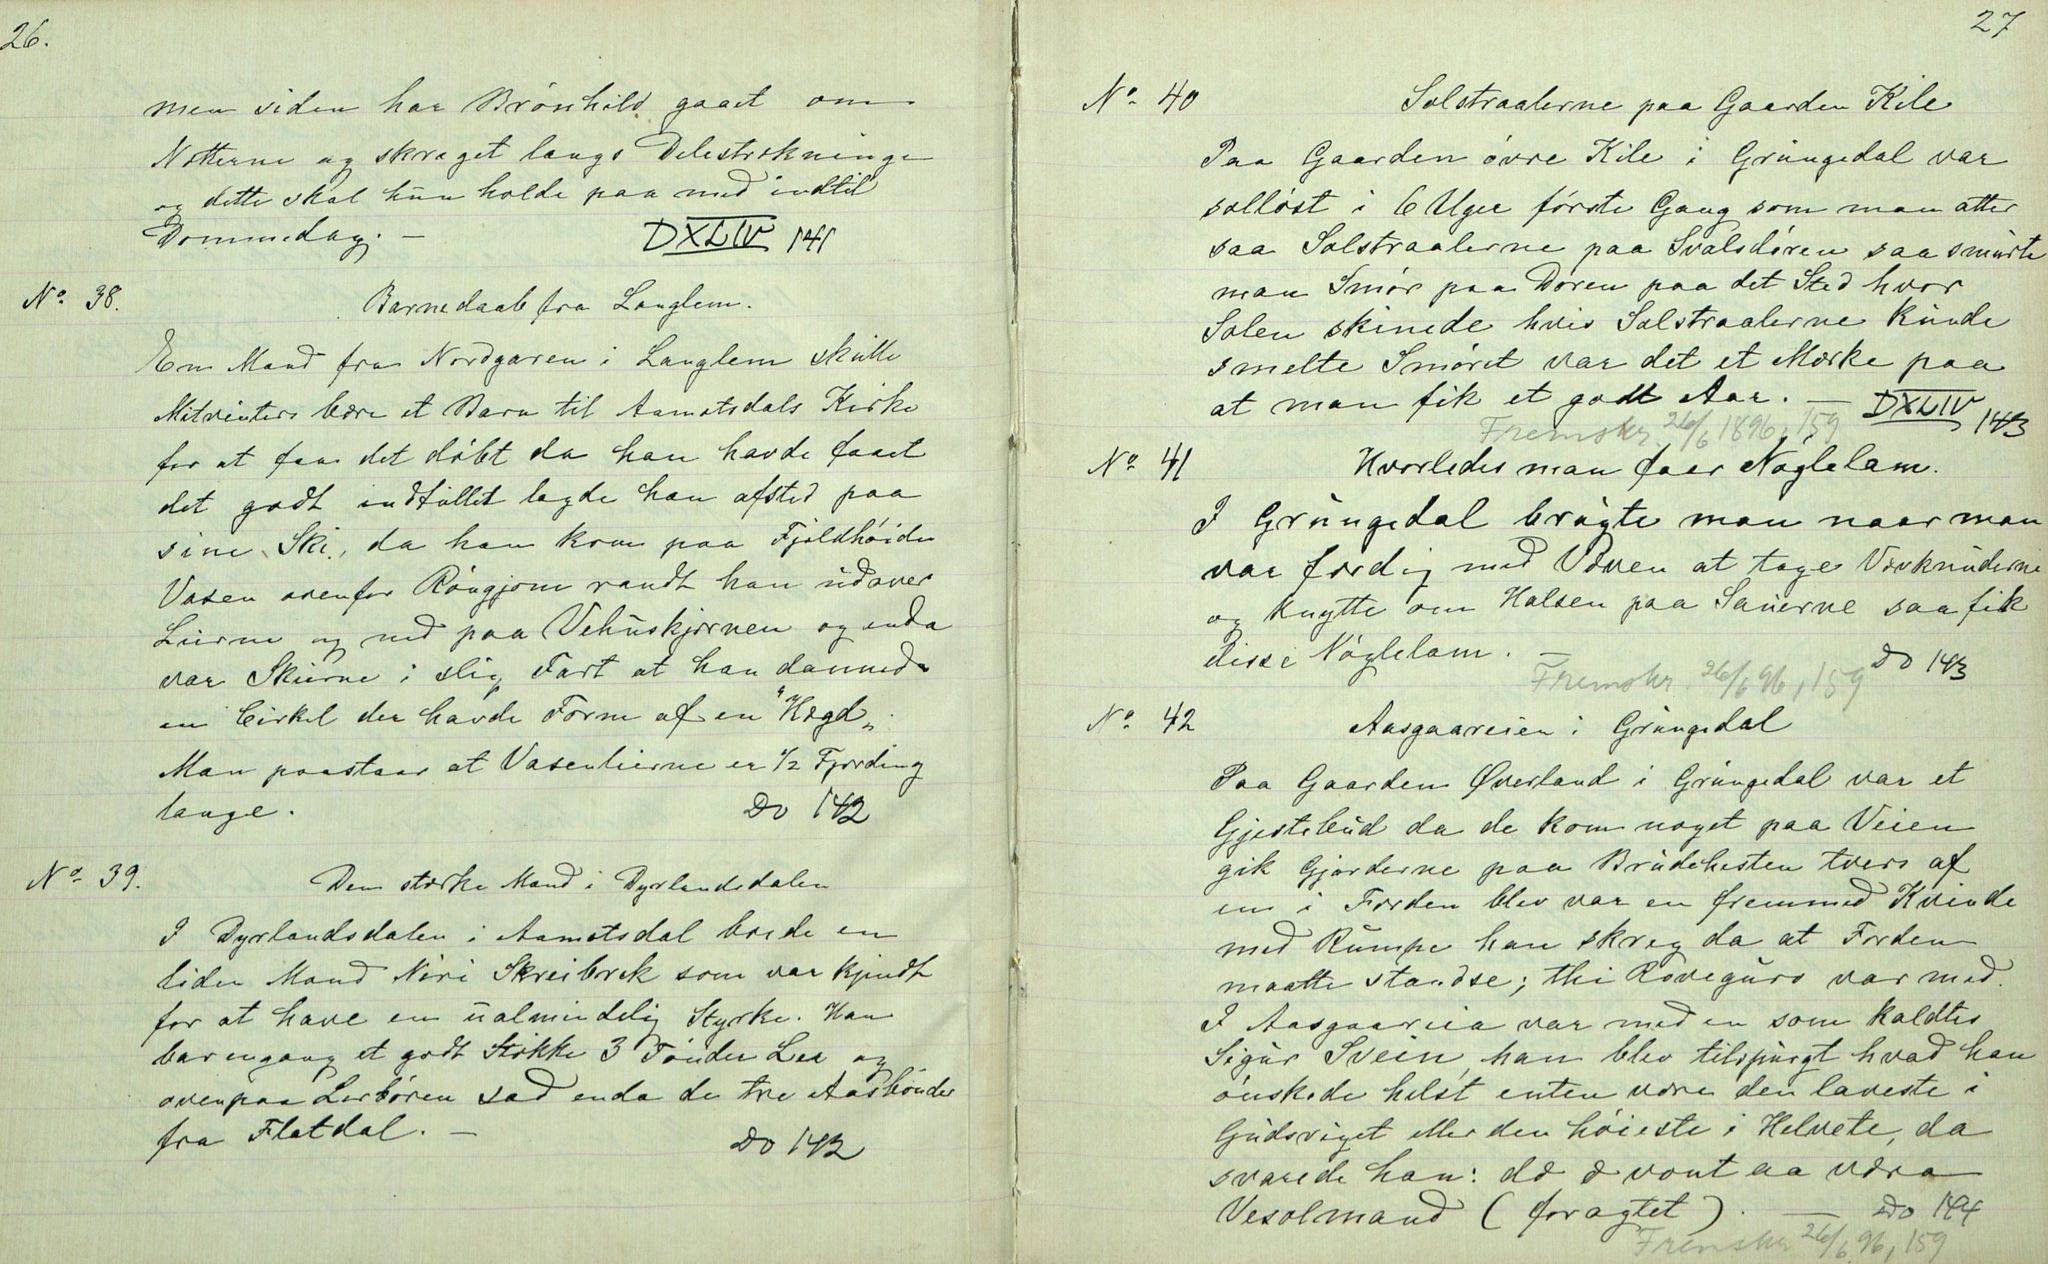 26.
men siden har Brönhild gaaet om
Nætterne og skreget langs Delestrekninge
og dette skal hun holde paa med indtil
Dommedag. —
DXLIV 141
No 38.
Barnedaab fra Langlem.
En Mand fra Nordgaren i Langlem skulle
Mitvinters bære et Barn til Aamotsdals Kirke
for at faa det döbt da han havde faaet
det godt indtullet lagde han afsted paa
sine Ski, da han kom paa Fjeldhöiden
Vasen ovenfor Röngjom randt han udover
Lierne og ned paa Vehuskjernen og enda
var Skierne i slig Fart at han dannede
en Cirkel der havde Form af en "Hægd„
Man paastaar at Vasenlierne er 1/2 Fjerding
lange.
Do 142
No 39.
Den stærke Mand i Dyrlandsdalen
I Dyrlandsdalen i Aamotsdal boede en
liden Mand Niri Skreibrek som var kjendt
for at have en ualmindelig Styrke. Han
bar engang et godt Stökke 3 Tönder Ler og
ovenpaa Lerbören sad enda de tre Aasbönder
fra Flatdal. —
Do 142
27
No 40
Solstraalerne paa Gaarden Kile
Paa Gaarden övre Kile i Grungedal var
solløst i 6 Uger förste Gang som man atter
saa Solstraalerne paa Svalsdören saa smurte
man Smör paa Dören paa det Sted hvor
Solen skinede hvis Solstraalerne kunde
smelte Smöret var det et Mærke paa
at man fik et godt Aar. —
DXLIV 143
Fremskr. 26/6 1896, 159
No 41
Hvorledes man faar Nöglelam.
I Grungedal brugte man naar man
var færdig med Væven at tage Vævknuderne
og knytte om Halsen paa Sauerne saa fik
disse Nöglelam. —
Do 143
Fremskr. 26/6 96, 159
No 42
Aasgaareien i Grungedal
Paa Gaarden Øverland i Grungedal var et
Gjestebud da de kom noget paa Veien
gik Gjorderne paa Brudehesten tvers af
en i Færden blev var en fremmed Kvinde
med Rumpe han skreg da at Færden
maatte standse; thi Roveguro var med.
I Aasgaareia var med en som kaldtes
Sigur Svein, han blev tilspurgt hvad han
önskede helst enten være den laveste i
Gudsriget eller den höieste i Helvete, da
svarede han: dæ æ vont aa væra
Vesolmand (foragtet). —
Do 144
Fremskr 26/6 96, 159